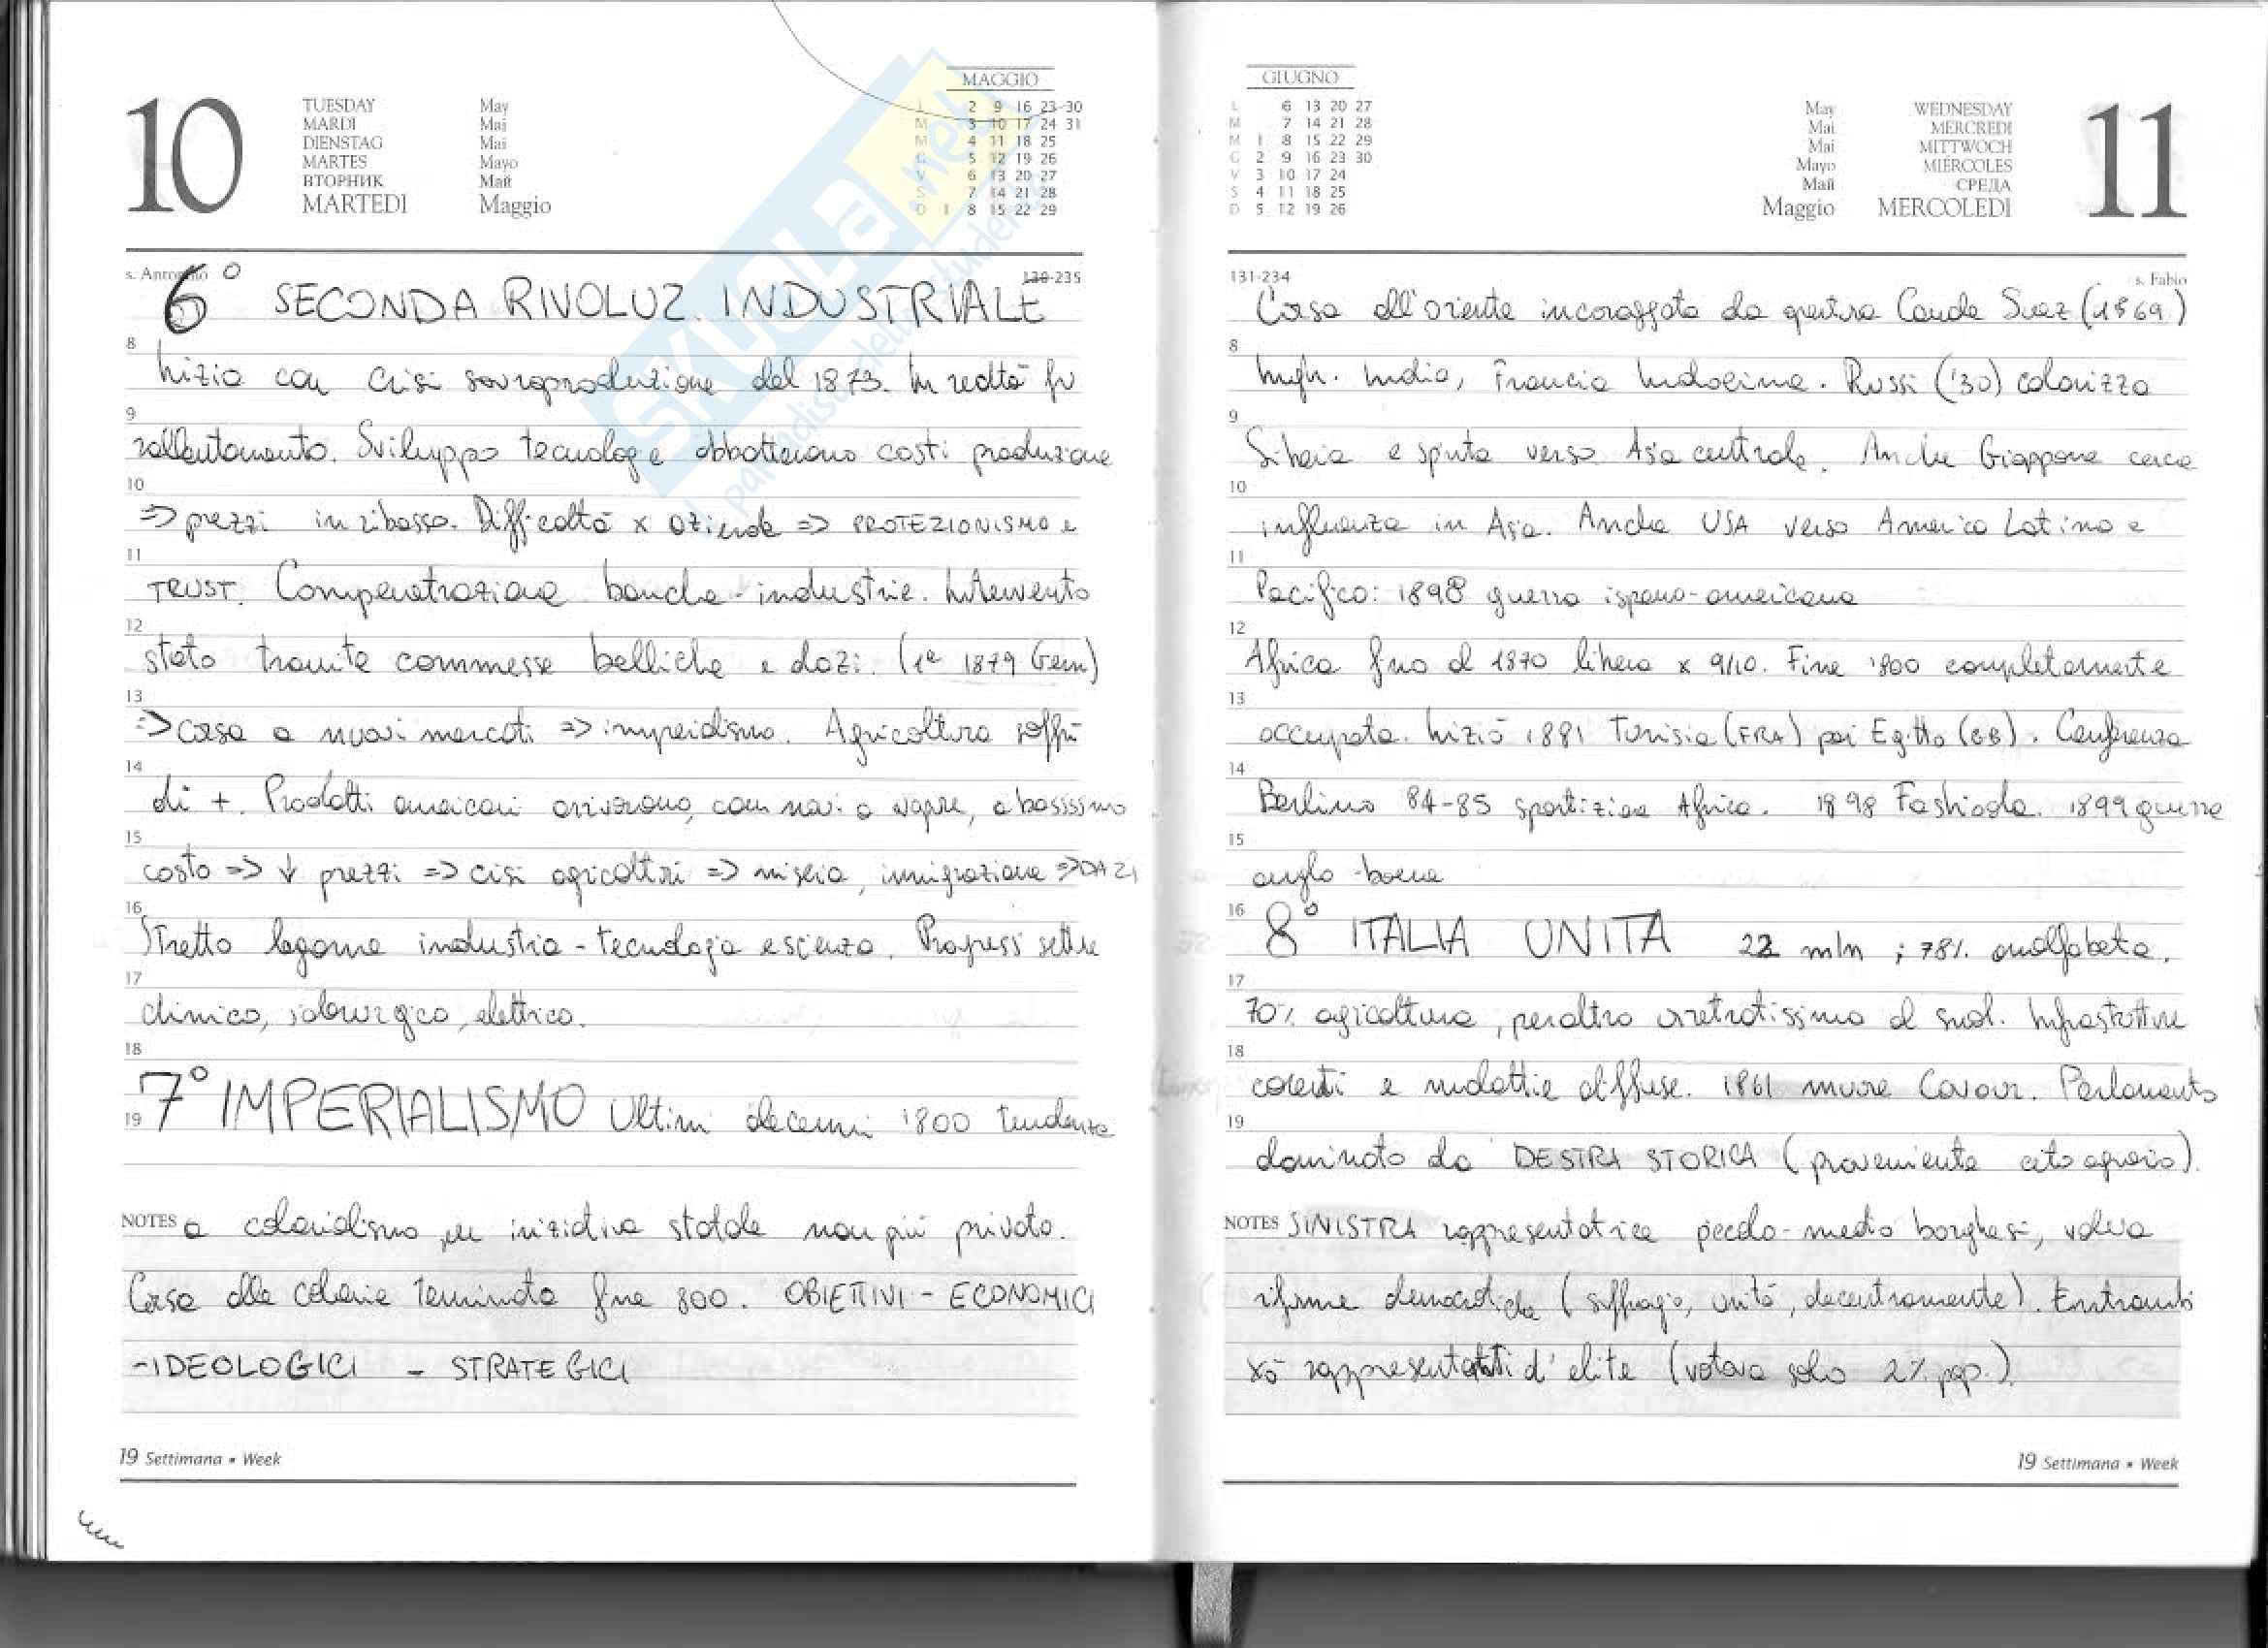 10
TUESDAY May
MARDI Mai
DIENSTAG Mai
MARTES Mayo
ВТОРНИК Май
MARTEDÌ Maggio
MAGGIO
L 2 9 16 23 30
M 3 10 17 24 31
M 4 11 18 25
G 5 12 19 26
V 6 13 20 27
S 7 14 21 28
D 1 8 15 22 29
s. Antonino 130-235
6° SECONDA RIVOLUZ. INDUSTRIALE
8 Inizia con crisi sovrapproduzione del 1873. In realtà fu
9 rallentamento. Sviluppo tecnolog e abbattevano costi produzione
10 => prezzi in ribasso. Difficoltà x aziende => PROTEZIONISMO e
11 TRUST. Compenetrazione banche-industrie. Intervento
12 stato tramite commesse belliche e dazi. (1° 1879 Germ)
13 => corsa a nuovi mercati => imperialismo. Agricoltura soffrì
14 di +. Prodotti americani arrivarono, con navi a vapore, a bassissimo
15 costo => ↓ prezzi => crisi agricoltori => miseria, immigrazione => DAZI
16 Stretto legame industria - tecnologia e scienza. Progressi settore
17 chimico, siderurgico, elettrico.
18
19 7° IMPERIALISMO Ultimi decenni '800 tendenza
NOTES a colonialismo per iniziativa statale non più privata.
Corsa alle colonie terminata fine 800. OBIETTIVI - ECONOMICI
- IDEOLOGICI - STRATEGICI
19 Settimana • Week
GIUGNO
L 6 13 20 27
M 7 14 21 28
M 1 8 15 22 29
G 2 9 16 23 30
V 3 10 17 24
S 4 11 18 25
D 5 12 19 26
May WEDNESDAY
Mai MERCREDI
Mai MITTWOCH
Mayo MIÉRCOLES
Май СРЕДА
Maggio MERCOLEDÌ
11
131-234 s. Fabio
Corsa all'oriente incoraggiata da apertura Canale Suez (1869)
8 Ingh. India, Francia Indocina. Russi ('30) colonizza
9 Siberia e spinta verso Asia centrale. Anche Giappone cerca
10 influenza in Asia. Anche USA verso America Latina e
11 Pacifico: 1898 guerra ispano-americana
12 Africa fino al 1870 libera x 9/10. Fine '800 completamente
13 occupata. Iniziò 1881 Tunisia (FRA) poi Egitto (GB). Conferenza
14 Berlino 84-85 spartizione Africa. 1898 Fashioda. 1899 guerra
15 anglo-boera
16 8° ITALIA UNITA 22 mln ; 78% analfabeta.
17 70% agricoltura, peraltro arretratissima al sud. Infrastrutture
18 carenti e malattie diffuse. 1861 muore Cavour. Parlamento
19 dominato da DESTRA STORICA (proveniente ceto agrario).
NOTES SINISTRA rappresentatrice piccolo-media borghesi, voleva
riforme democratiche (suffragio, unità, decentramente). Entrambi
xò rappresentanti d'elite (votava solo 2% pop.).
19 Settimana • Week
SKUOLA.net
il paradiso dello studente